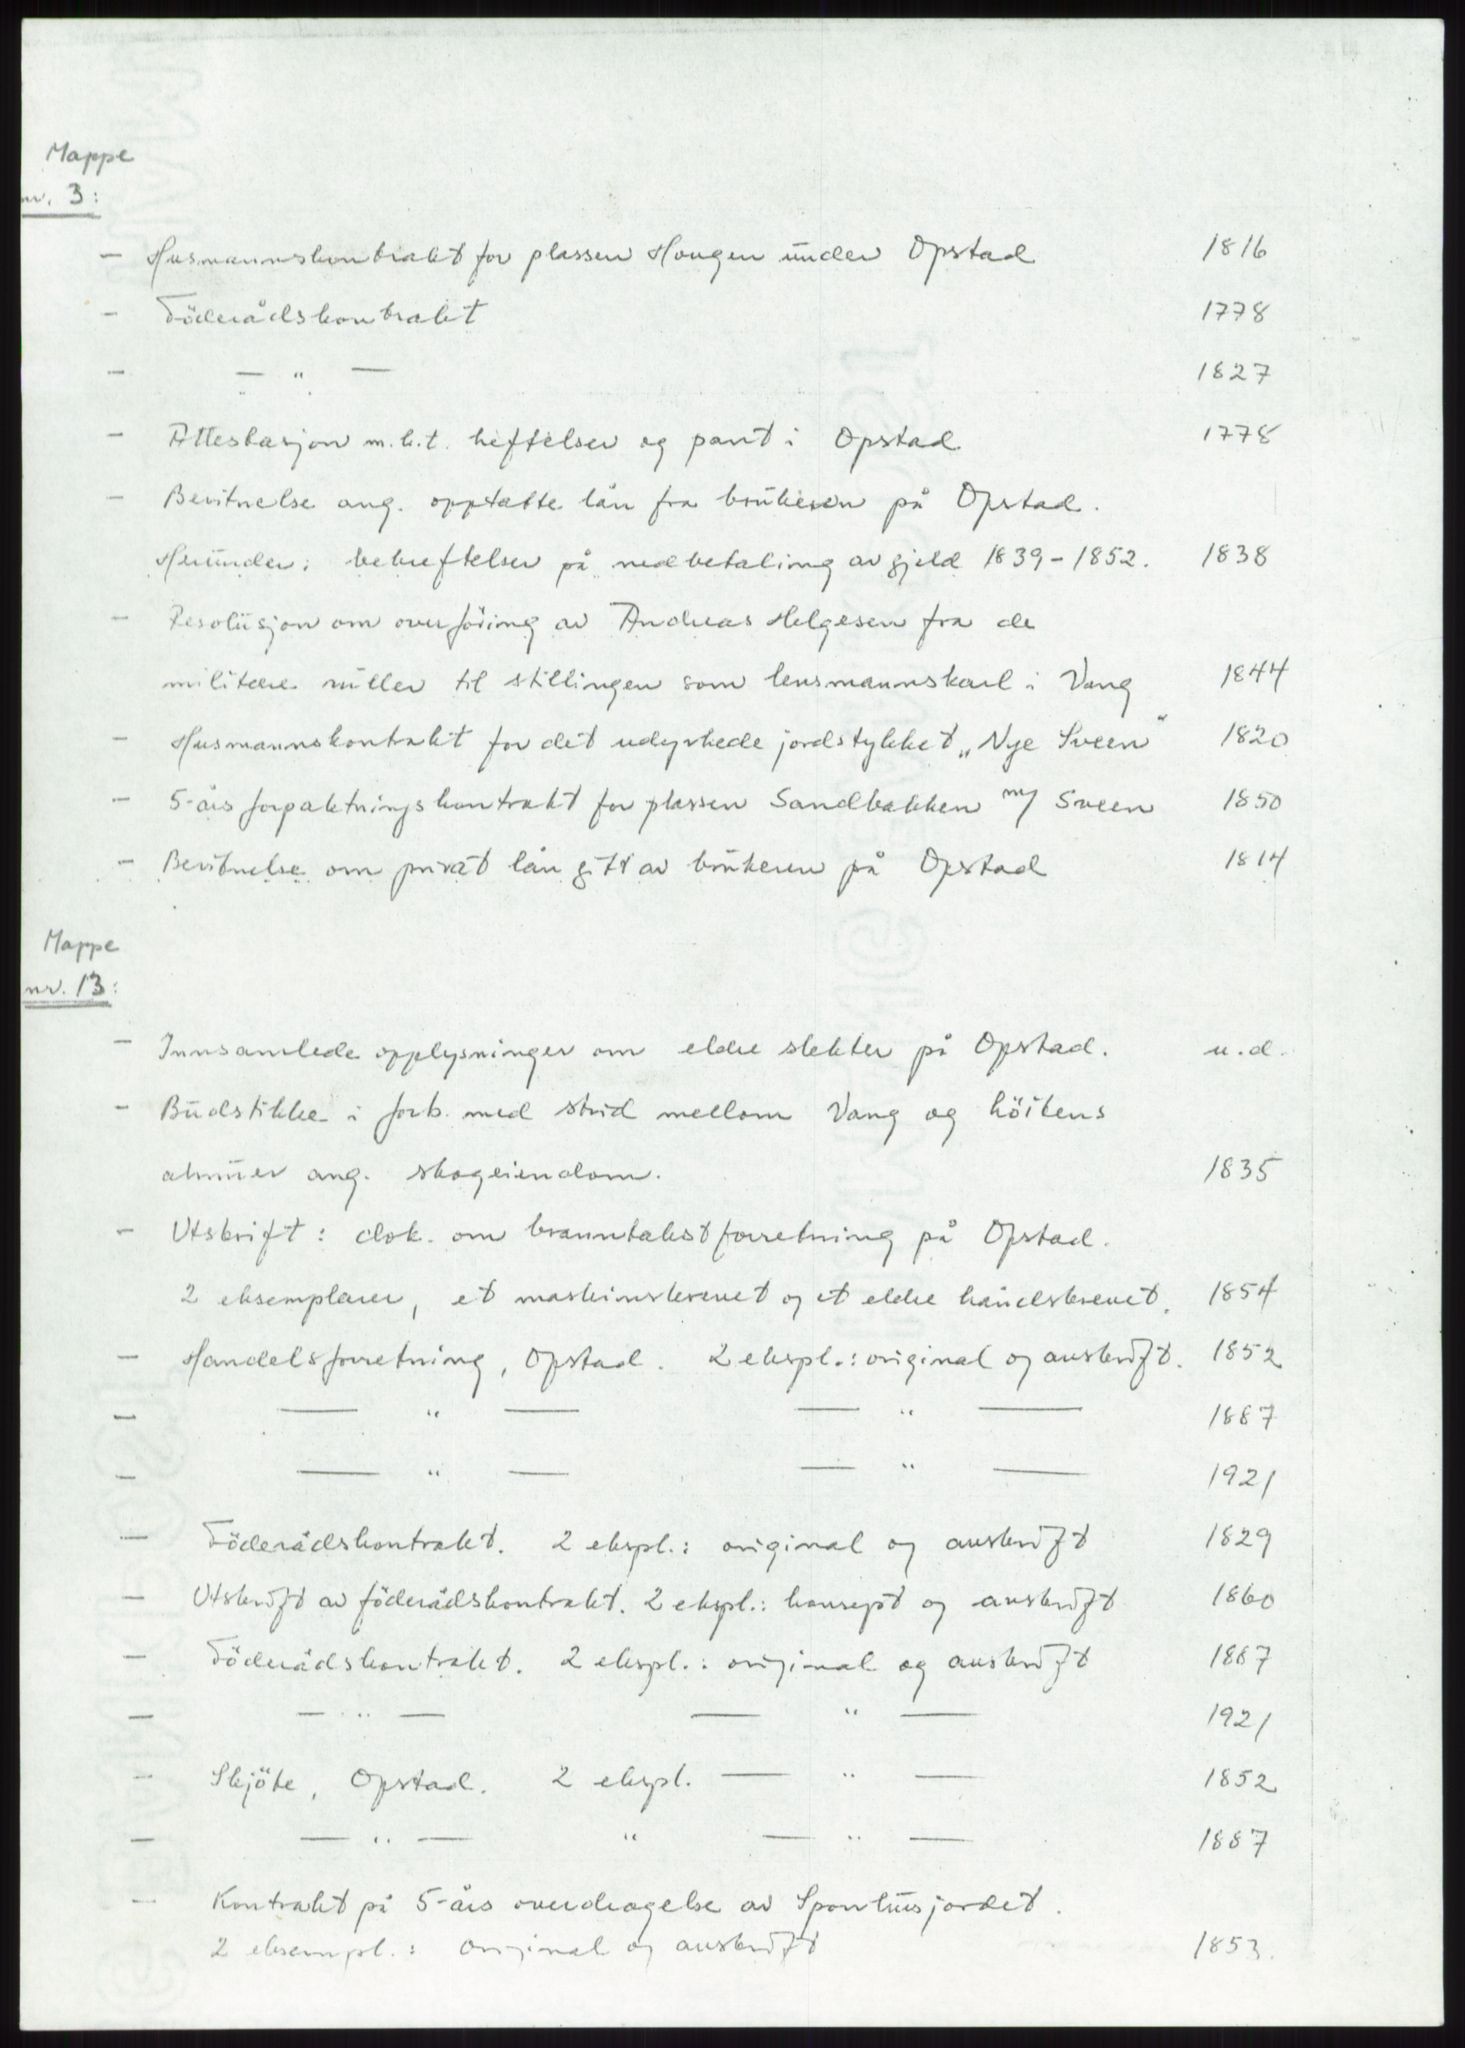 Mappe
nr. 3:
– Husmannskontrakt for plassen Hougen under Opstad 1816
– Föderådskontrakt 1778
– — " — 1827
– Attestasjon m.h.t. heftelser og pant i Opstad 1778
– Bevitnelse ang. opptatte lån fra brukeren på Opstad.
Herunder: bekreftelser på nedbetaling av gjeld 1839–1852. 1838
– Resolusjon om overföring av Andreas Helgesen fra de
militære ruller til stillingen som lensmannskarl i Vang 1844
– Husmannskontrakt for det udyrkede jordstykket „Nye Sveen“ 1820
– 5-års forpaktningskontrakt for plassen Sandbakken m/ Sveen 1850
– Bevitnelse om privat lån gitt av brukeren på Opstad 1814
Mappe
nr. 13:
– Innsamlede opplysninger om eldre slekter på Opstad. u.d.
– Budstikke i forb. med strid mellom Vang og Löitens
almuer ang. skogeiendom. 1835
– Utskrift: dok. om branntakstforretning på Opstad.
2 eksemplarer, et maskinskrevet og et eldre håndskrevet. 1854
– Handelsforretning, Opstad. 2 ekspl.: original og avskrift. 1852
– — " — — " — 1887
– — " — — " — 1921
– Föderådskontrakt. 2 ekspl.: original og avskrift 1829
– Utskrift av föderådskontrakt. 2 ekspl.: konsept og avskrift 1860
– Föderådskontrakt. 2 ekspl.: original og avskrift 1887
– — " — — " — 1921
– Skjöte, Opstad. 2 ekspl. — " — 1852
– — " — " — " — 1887
– Kontrakt på 5-års overdragelse av Sponlusjordet.
2 eksempl.: original og avskrift 1853.